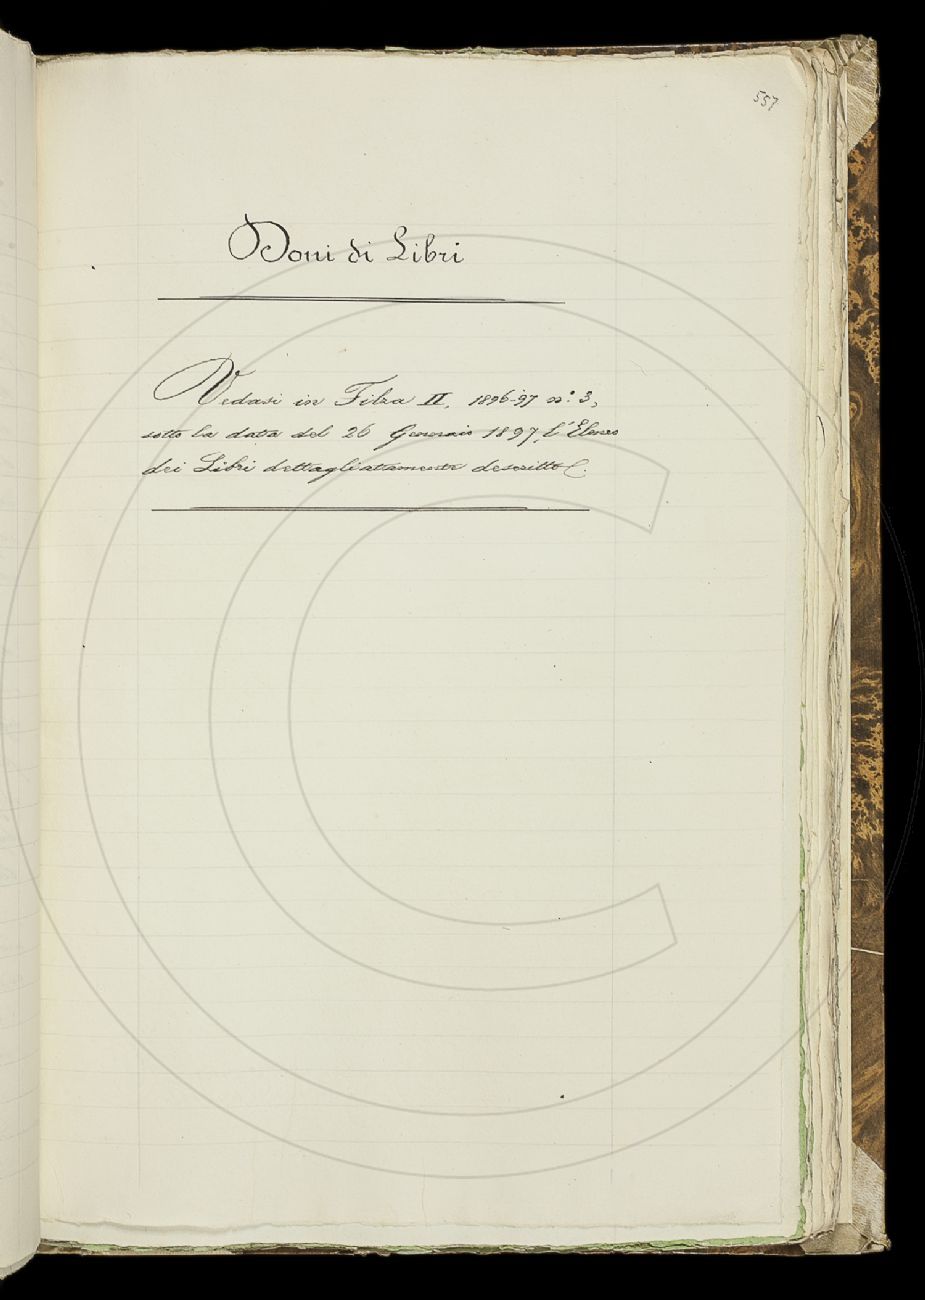 557
Doni di Libri
Vedasi in Filza II, 1896-97 n.° 3,
sotto la data del 26 Gennaio 1897, l'Elenco
dei Libri dettagliatamente descritto.